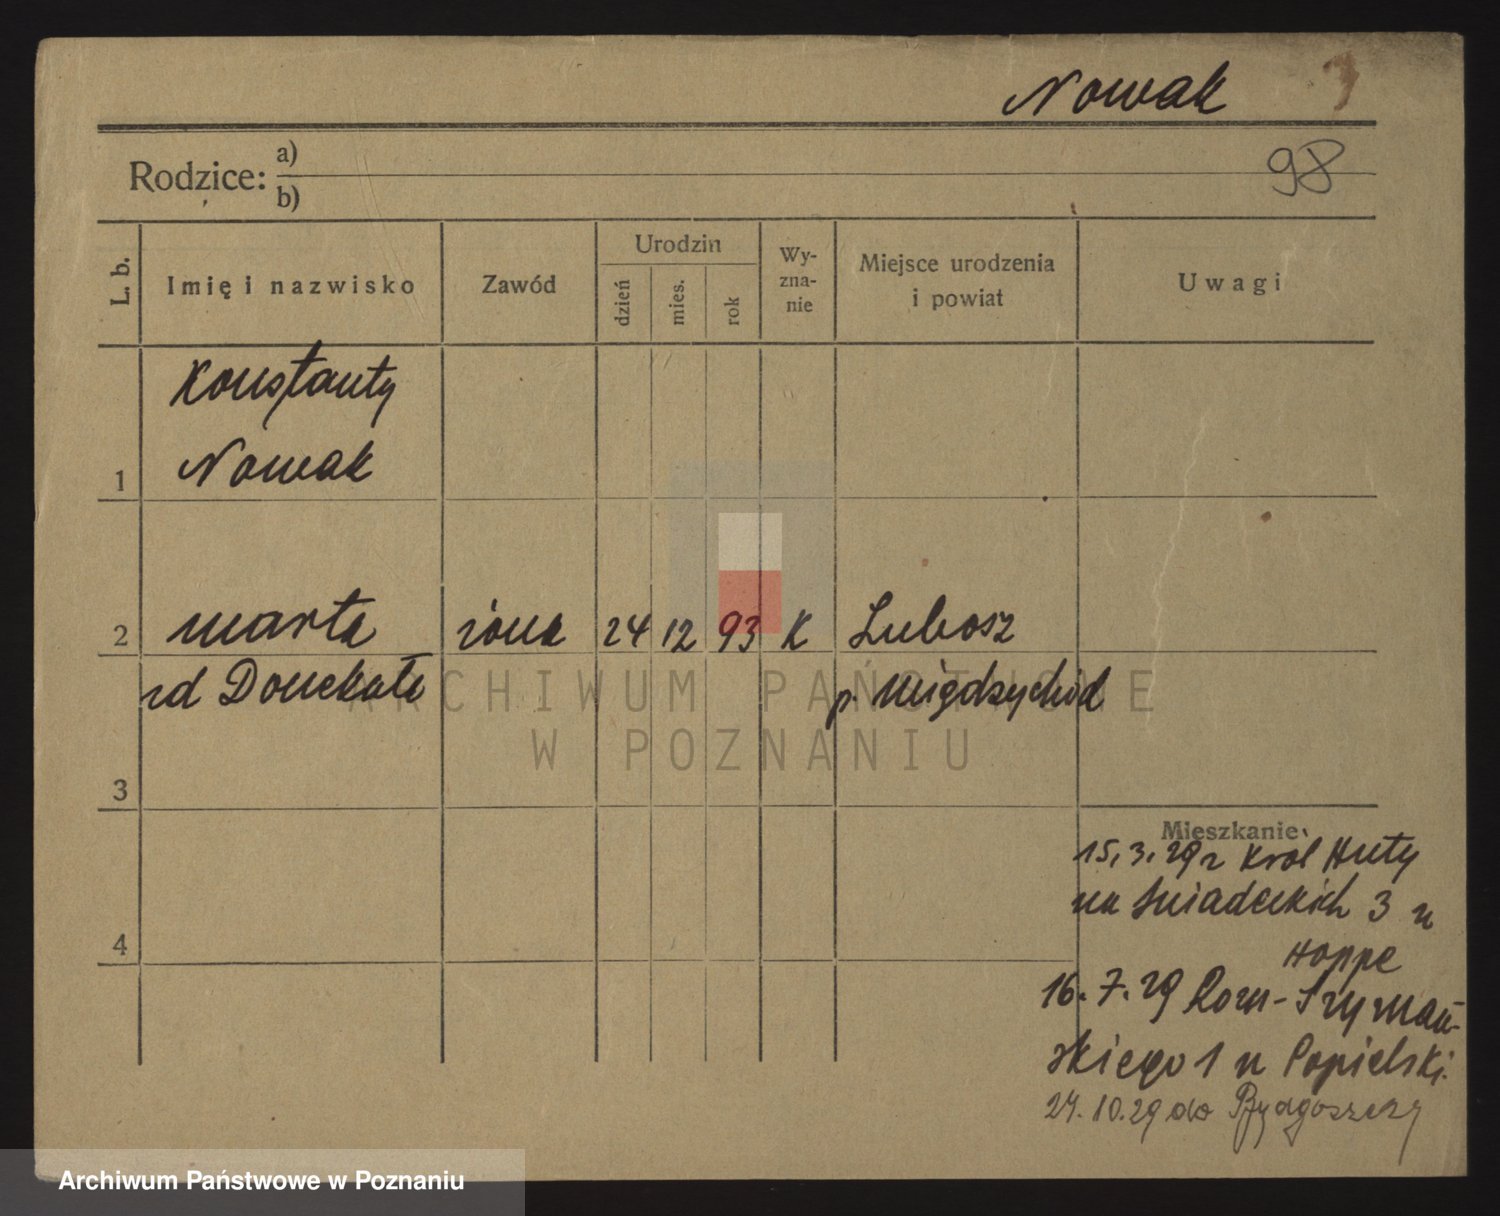 Nowak
98
Rodzice:
a)
b)
L. b.
Imię i nazwisko
Zawód
Urodzin
dzień
mies.
rok
Wy-
zna-
nie
Miejsce urodzenia
i powiat
Uwagi
Konstanty
Nowak
1
2
marta
żona
24
12
93
K
Lubosz
zd Donekata
p. Międzychód
ARCHIWUM PAŃSTWOWE
W POZNANIU
3
Mieszkanie
15.3.29 z Król Huty
na Śniadeckich 3 u
Hoppe
4
16.7.29 Rom-Szymań-
skiego 1 u Popielski.
24.10.29 do Bydgoszczy
Archiwum Państwowe w Poznaniu